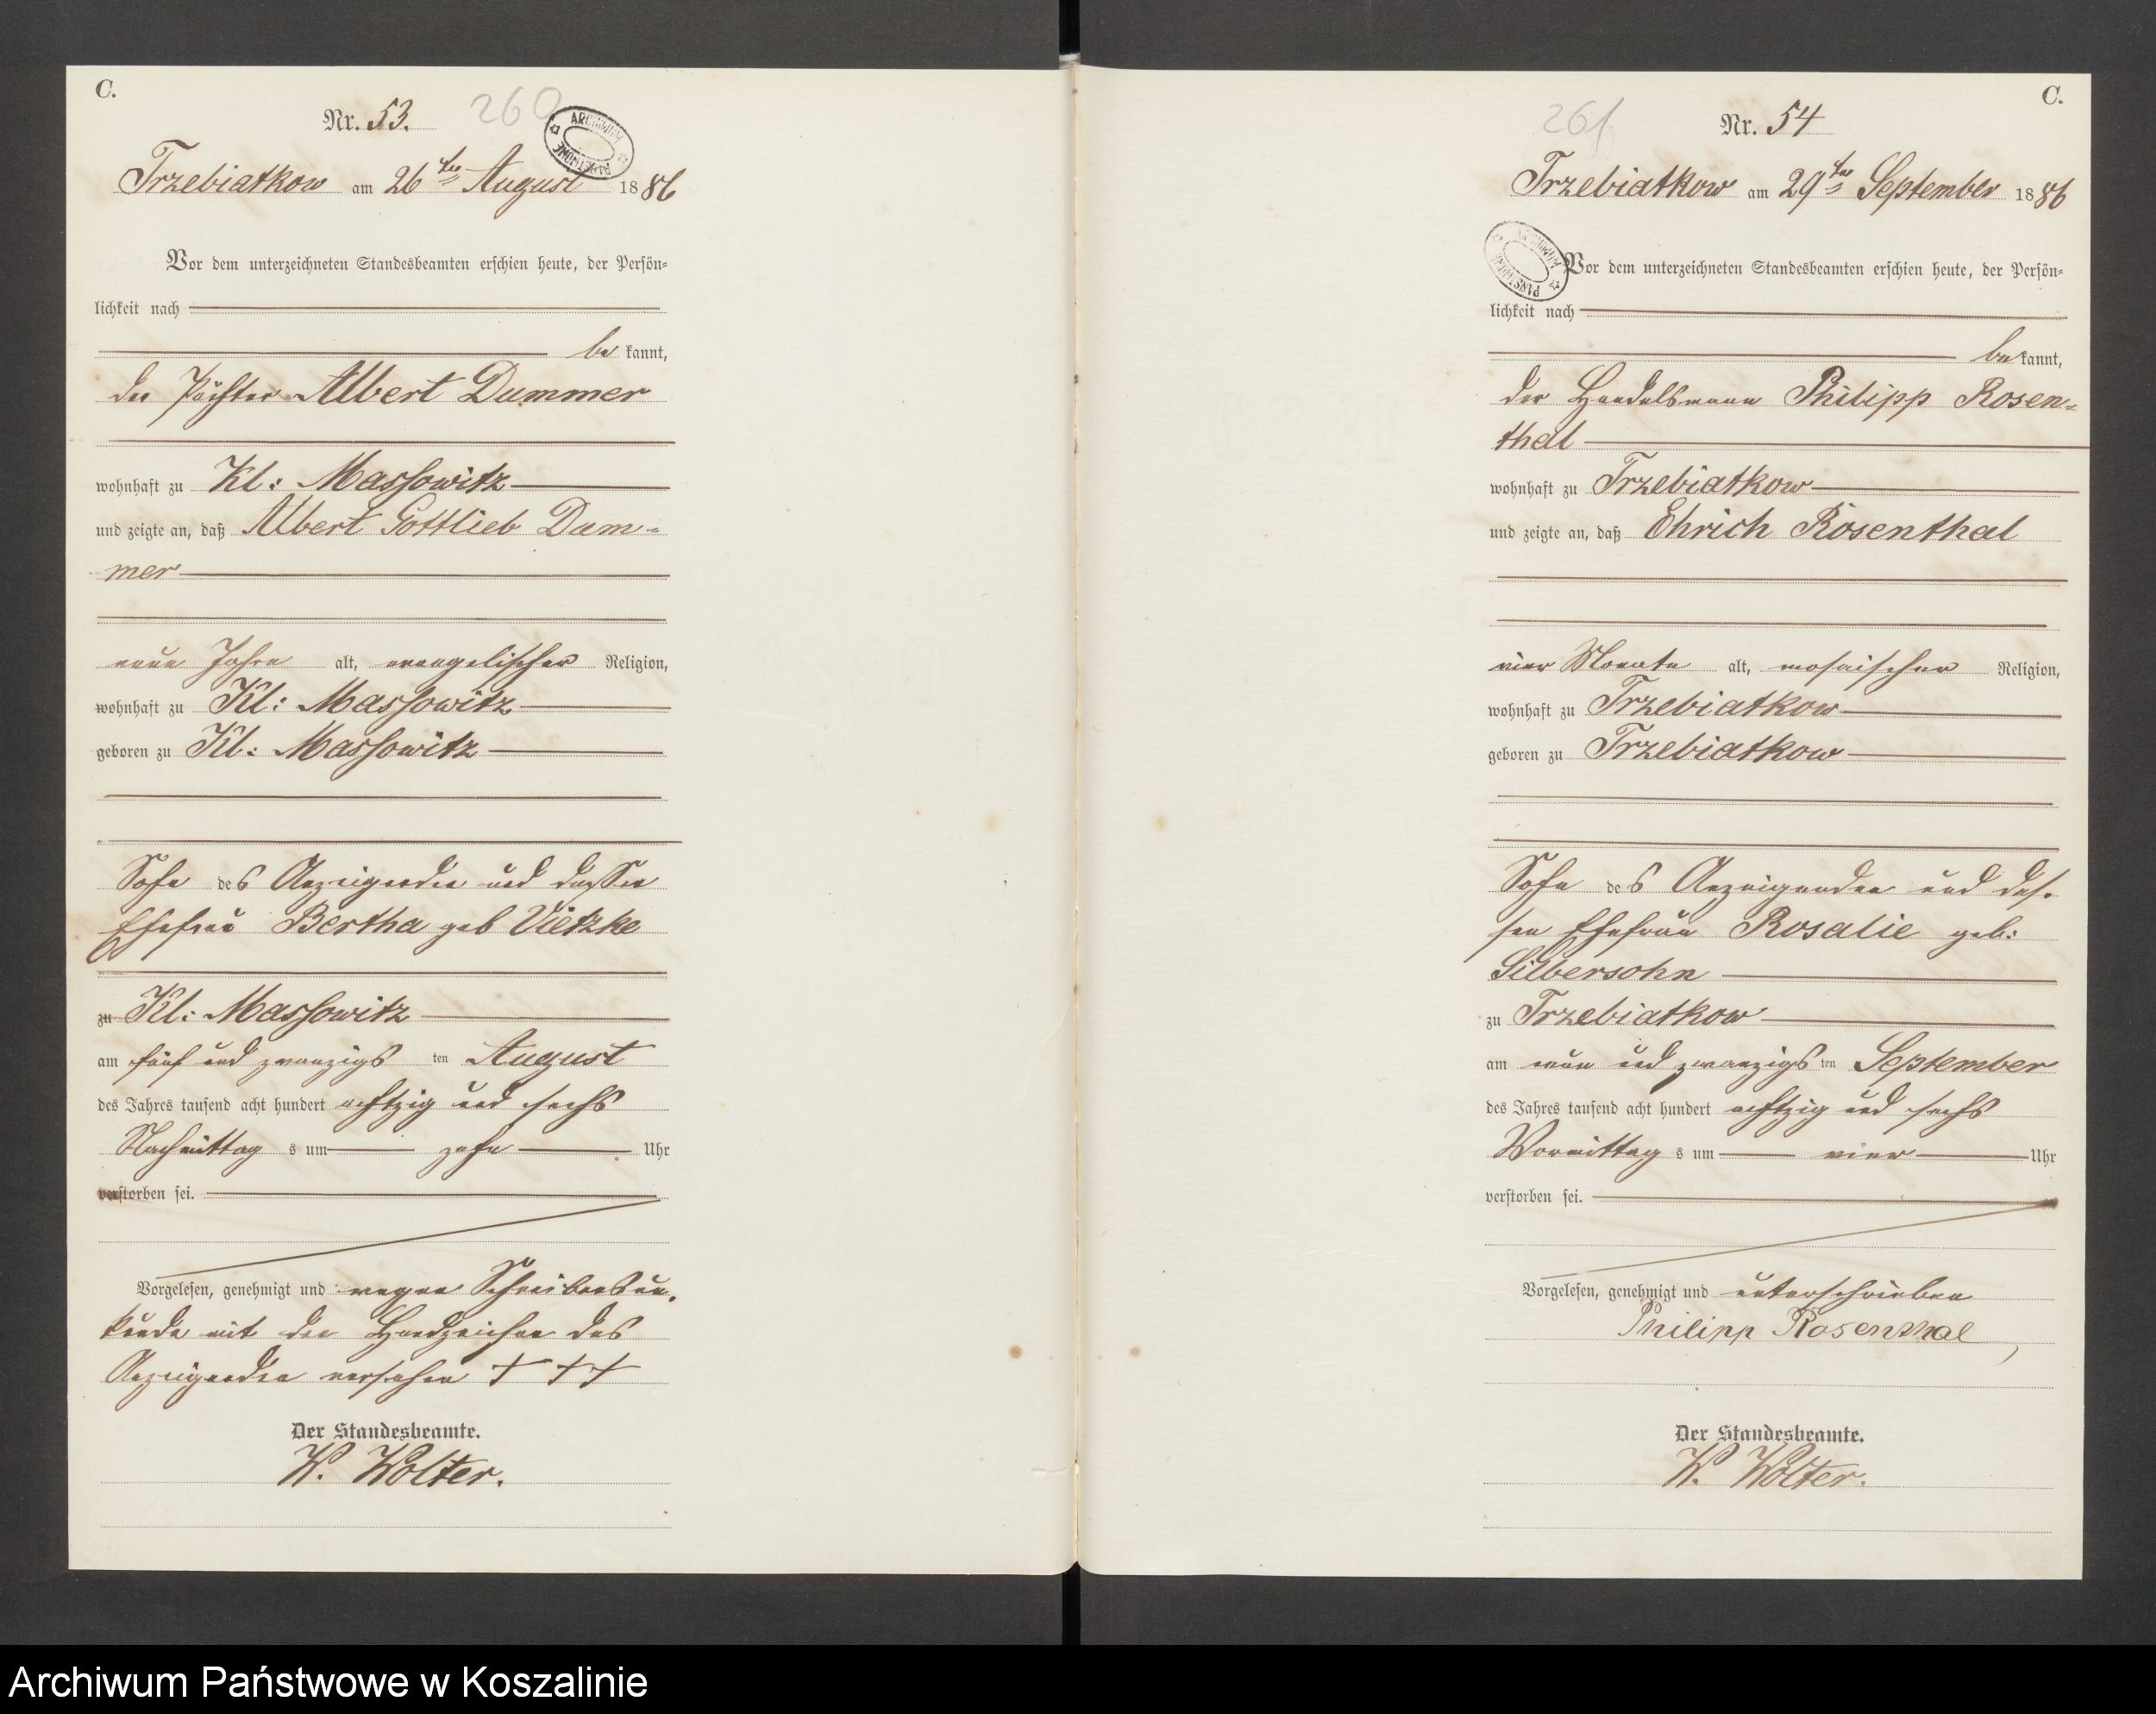 C.
Nr. 53.
260
ARCHIWUM PAŃSTWOWE
Trzebiatkow am 26ten August 1886
Vor dem unterzeichneten Standesbeamten erschien heute, der Persön-
lichkeit nach
be kannt,
der Pächter Albert Dummer
wohnhaft zu Kl: Massowitz
und zeigte an, daß Albert Gottlieb Dum-
mer
neun Jahre alt, evangelischer Religion,
wohnhaft zu Kl: Massowitz
geboren zu Kl: Massowitz
Sohn des Anzeigenden und dessen
Ehefrau Bertha geb Vietzke
zu Kl: Massowitz
am fünf und zwanzigs ten August
des Jahres tausend acht hundert achtzig und sechs
Nachmittag s um zehn Uhr
verstorben sei.
Vorgelesen, genehmigt und wegen Schreibensun-
kunde mit den Handzeichen des
Anzeigenden versehen + + +
Der Standesbeamte.
W. Wolter.
C.
261
Nr. 54
Trzebiatkow am 29ten September 1886
ARCHIWUM PAŃSTWOWE
Vor dem unterzeichneten Standesbeamten erschien heute, der Persön-
lichkeit nach
be kannt,
der Handelsmann Philipp Rosen-
thal
wohnhaft zu Trzebiatkow
und zeigte an, daß Ehrich Rosenthal
vier Monate alt, mosaischer Religion,
wohnhaft zu Trzebiatkow
geboren zu Trzebiatkow
Sohn des Anzeigenden und des-
sen Ehefrau Rosalie geb:
Silbersohn
zu Trzebiatkow
am neun und zwanzigs ten September
des Jahres tausend acht hundert achtzig und sechs
Vormittag s um vier Uhr
verstorben sei.
Vorgelesen, genehmigt und unterschrieben
Philipp Rosenthal
Der Standesbeamte.
W. Wolter.
Archiwum Państwowe w Koszalinie